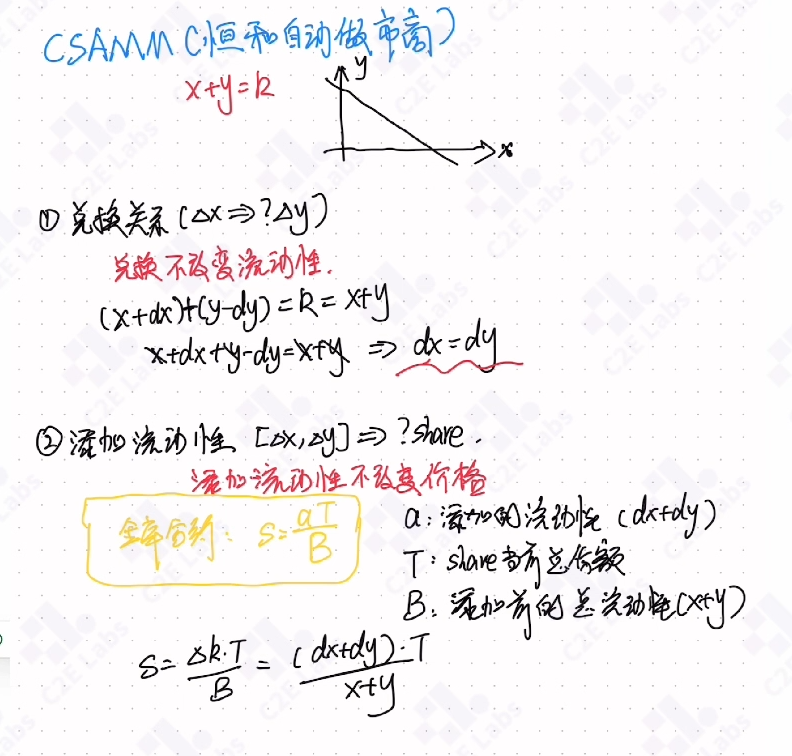 CSAMM (恒和自动做市商)
x+y=k
y
x
① 兑换关系 (Δx⇒?Δy)
兑换不改变流动性.
(x+dx)+(y-dy)=k=x+y
x+dx+y-dy=x+y ⇒ dx=dy
② 添加流动性 [Δx,Δy]⇒?share.
添加流动性不改变价格
金库合约: S=aT/B
a:添加的流动性 (dx+dy)
T:share当前总份额
B:添加前的总流动性(x+y)
S=Δk·T/B=(dx+dy)·T/x+y
C2E Labs